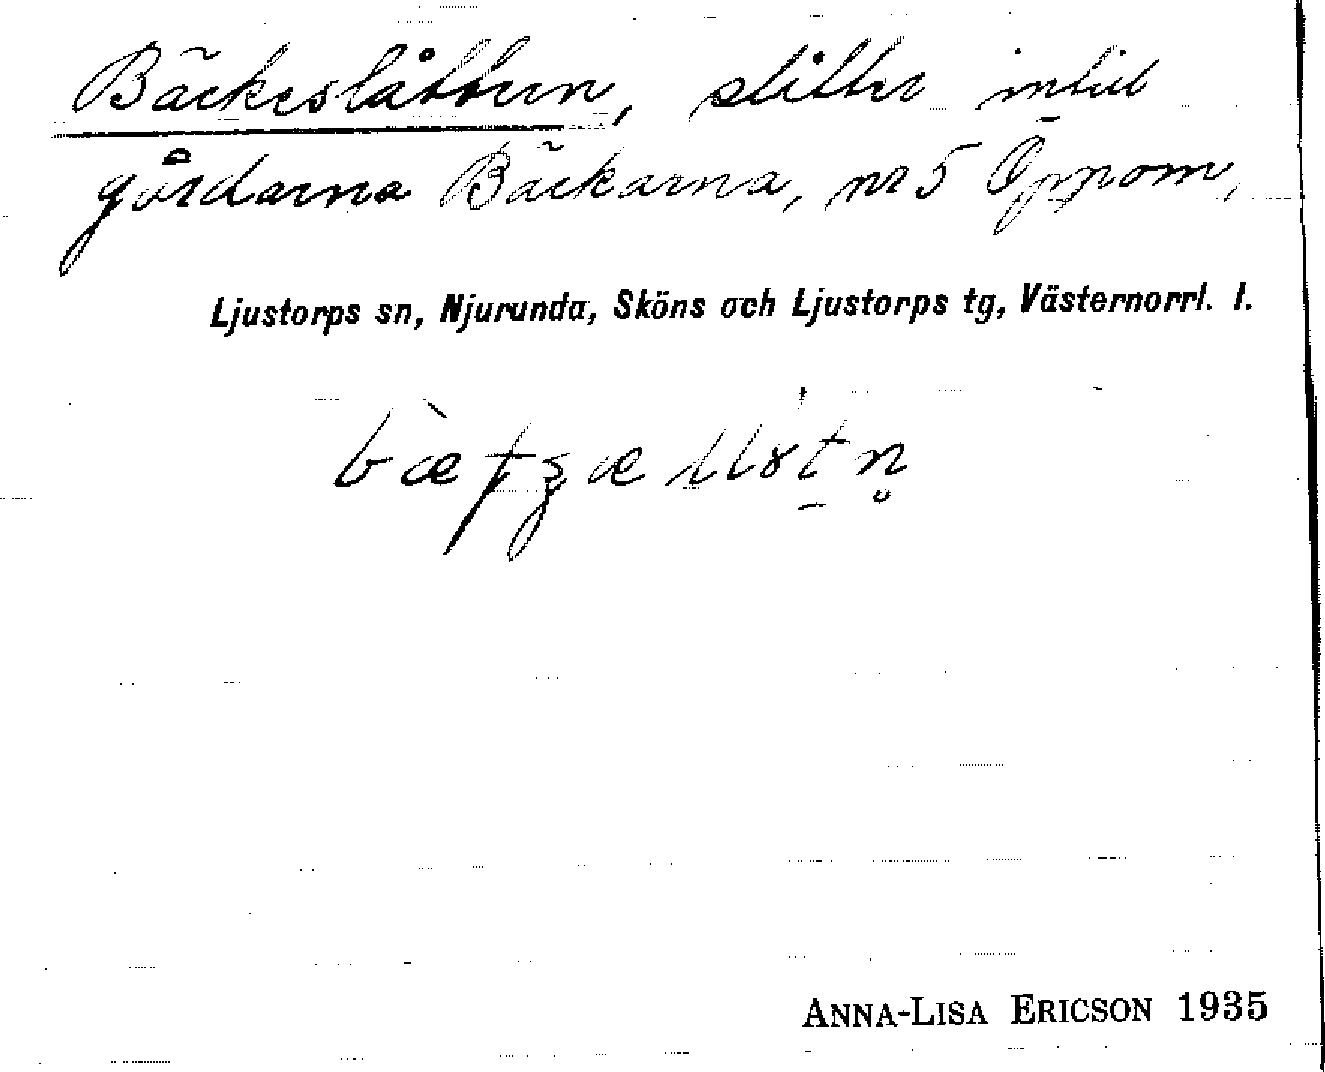 Bäckeslåtten, slåtter intill
gårdarna Bäckarna, nr 5 Öppom,
Ljustorps sn, Njurunda, Sköns och Ljustorps tg, Västernorrl. l.
ANNA-LISA ERICSON 1935